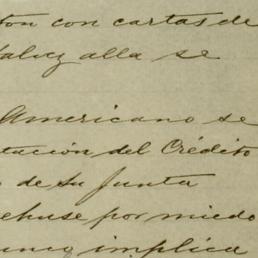 ton con cartas de
alla se
Americano se
tación del Crédito
de su Junta
rehuse por miedo
implica